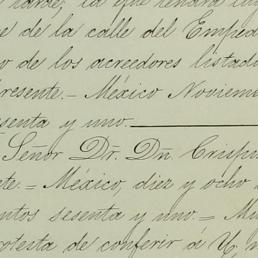 tarde, la que tendrá lu
e de la calle del Emped
o de los acreedores listad
resente.- México Noviem
senta y uno.
Señor Dr. Dn. Crispi
te.= México, diez y ocho
ntos sesenta y uno.= Mu
otesta de conferir á U, n